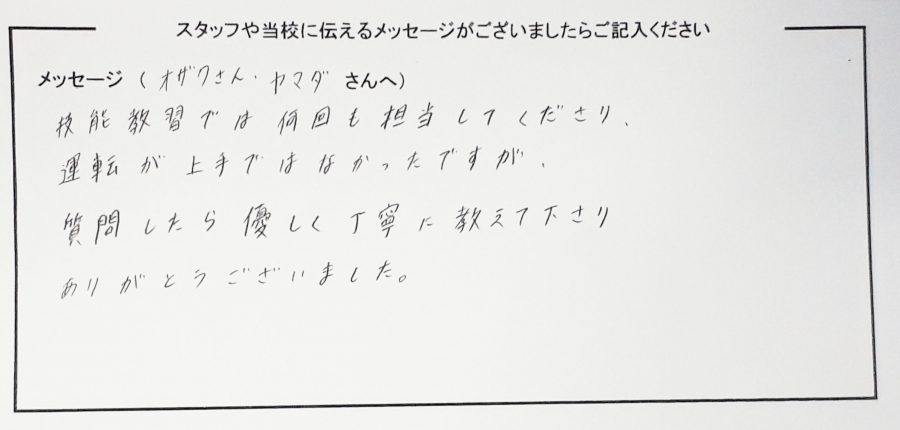 スタッフや当校に伝えるメッセージがございましたらご記入ください
メッセージ（オザワさん・ヤマダ さんへ）
技能教習では何回も担当してくださり、
運転が上手ではなかったですが、
質問したら優しく丁寧に教えて下さり
ありがとうございました。